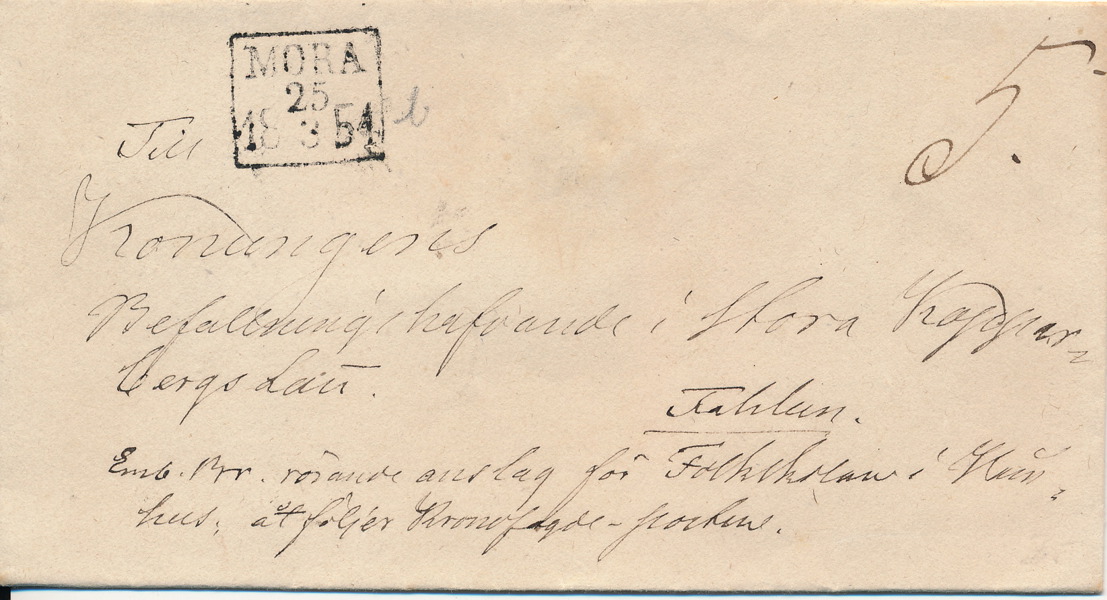 MORA
25
18 3 54
5.
Till
Konungens
Befallningshafvande i Stora Koppar=
bergs Län.
Fahlun.
Emb. Brr. rörande anslag för Folkskolan i
hus; åtföljer Kronofogde-posten.